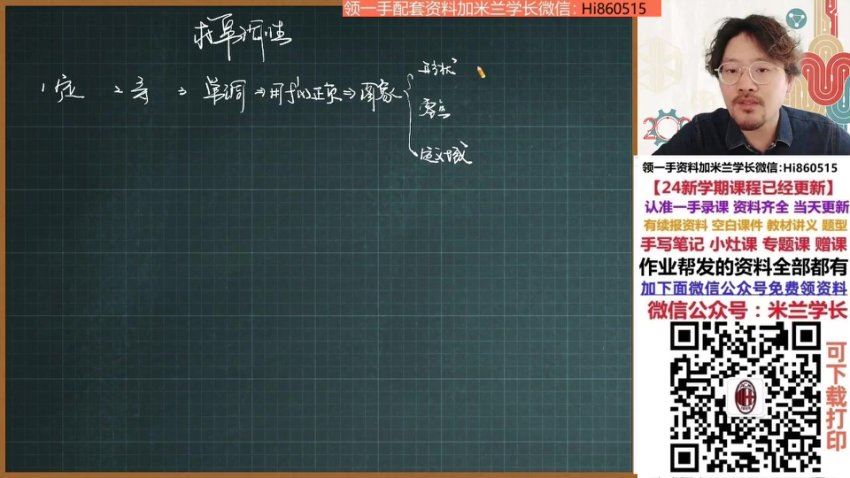 领一手配套资料加米兰学长微信：Hi860515
求单调性
1 定 2 导 3 单调 → 用f'(x)正负 ⇒ 图象
形状
零点
定义域
领一手资料加米兰学长微信：Hi860515
【24新学期课程已经更新】
认准一手录课 资料齐全 当天更新
有续报资料 空白课件 教材讲义 题型
手写笔记 小灶课 专题课 赠课
作业帮发的资料全部都有
加下面微信公众号免费领资料
微信公众号：米兰学长
可下载打印